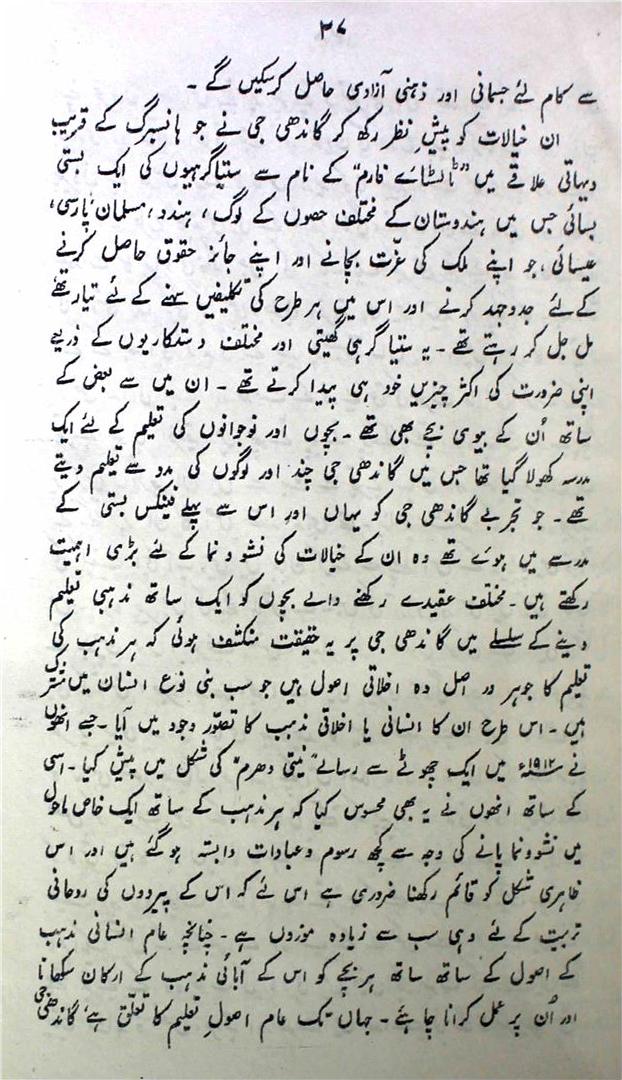 ۳۷
سے کام لئے جسمانی اور ذہنی آزادی حاصل کرسکیں گے۔
ان خیالات کو پیشِ نظر رکھ کر گاندھی جی نے جو ہانسبرگ کے قریب
دیہاتی علاقے میں "ٹالسٹائے فارم" کے نام سے ستیاگرہیوں کی ایک بستی
بسائی جس میں ہندوستان کے مختلف حصوں کے لوگ، ہندو، مسلمان، پارسی،
عیسائی، جو اپنے ملک کی عزّت بچانے اور اپنے جائز حقوق حاصل کرنے
کے لئے جدوجہد کرنے اور اس میں ہر طرح کی تکلیفیں سہنے کے لئے تیار تھے
مل جل کر رہتے تھے۔ یہ ستیاگرہی کھیتی اور مختلف دستکاریوں کے ذریعے
اپنی ضرورت کی اکثر چیزیں خود ہی پیدا کرتے تھے۔ ان میں سے بعض کے
ساتھ اُن کے بیوی بچے بھی تھے۔ بچوں اور نوجوانوں کی تعلیم کے لئے ایک
مدرسہ کھولا گیا تھا جس میں گاندھی جی چند اور لوگوں کی مدد سے تعلیم دیتے
تھے۔ جو تجربے گاندھی جی کو یہاں اور اس سے پہلے فینکس بستی کے
مدرسے میں ہوئے تھے وہ ان کے خیالات کی نشوونما کے لئے بڑی اہمیت
رکھتے ہیں۔ مختلف عقیدے رکھنے والے بچوں کو ایک ساتھ مذہبی تعلیم
دینے کے سلسلے میں گاندھی جی پر یہ حقیقت منکشف ہوئی کہ ہر مذہب کی
تعلیم کا جوہر در اصل وہ اخلاقی اصول ہیں جو سب بنی نوع انسان میں مشترک
ہیں۔ اس طرح ان کا انسانی یا اخلاقی مذہب کا تصوّر وجود میں آیا۔ جسے انھوں
نے ۱۹۱۲ء میں ایک چھوٹے سے رسالے "نیتی دھرم" کی شکل میں پیش کیا۔ اسی
کے ساتھ انھوں نے یہ بھی محسوس کیا کہ ہر مذہب کے ساتھ ایک خاص ماحول
میں نشوونما پانے کی وجہ سے کچھ رسوم وعبادات وابستہ ہو گئے ہیں اور اس
ظاہری شکل کو قائم رکھنا ضروری ہے اس لئے کہ اس کے پیروؤں کی روحانی
تربیت کے لئے وہی سب سے زیادہ موزوں ہے۔ چنانچہ عام انسانی مذہب
کے اصول کے ساتھ ساتھ ہر بچے کو اس کے آبائی مذہب کے ارکان سکھانا
اور اُن پر عمل کرانا چاہئے۔ جہاں تک عام اصولِ تعلیم کا تعلّق ہے، گاندھی جی